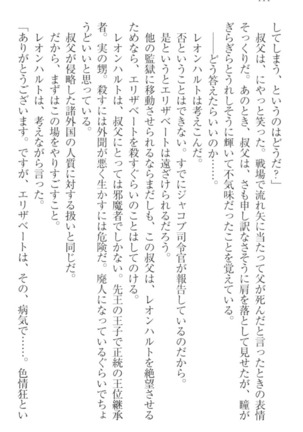 してしまう、というのはどうだ？」
叔父は、にやっと笑った。戦場で流れ矢に当たって父が死んだと言ったときの表情
そっくりだ。あのとき、叔父は、さも申し訳なさそうに肩を落として見せたが、瞳が
ぎらぎらとうれしそうに輝いて不気味だったことを覚えている。
――どう答えたらいいのか……。
レオンハルトは考えこんだ。
否というわけにはできない。すでにジャコブ司令官が報告しているのだから。
是というとエリザベートは遠ざけられるだろう。
他の監獄に移動させられるならまだしも、この叔父は、レオンハルトを絶望させる
ためなら、エリザベートを殺すぐらいのことはしてのける。
レオンハルトは、叔父にとっては邪魔者でしかない。先王の王子で正統の王位継承
者。実の甥。殺すには外聞が悪く生かすには危険だ。廃人になっているぐらいでちょ
うどいいと思っている。
叔父が侵略した諸外国の人質に対する扱いと同じだ。
だから、まずはこの場をやりすごすこと。
レオンハルトは、考えながら言った。
「ありがとうございます。ですが、エリザベートは、その、病気で……。色情狂とい